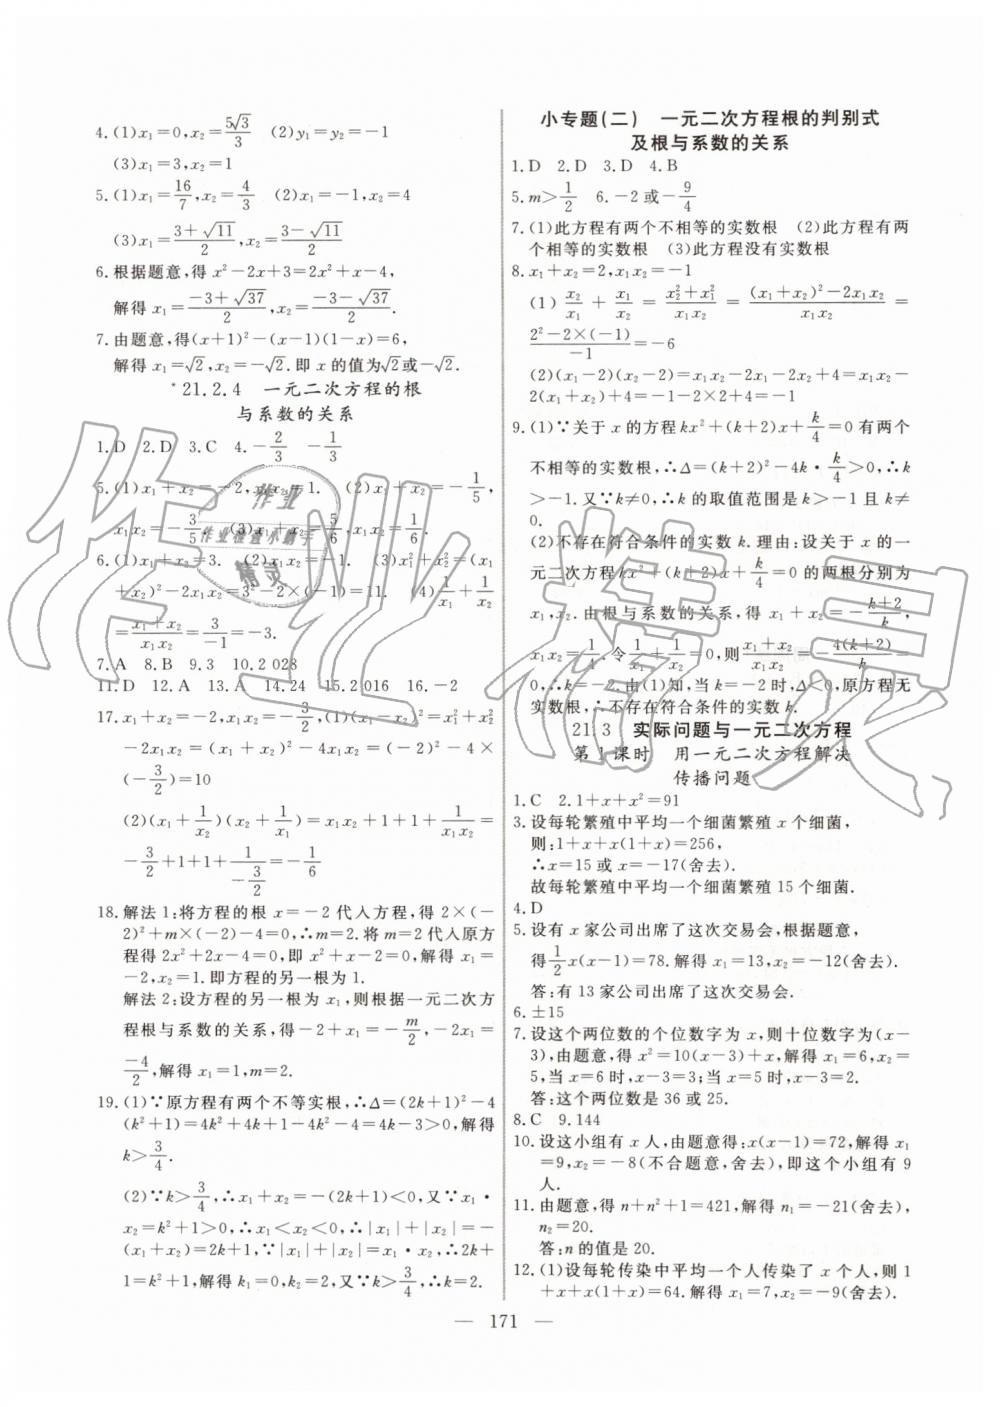 4.(1)x₁=0,x₂=5√3/3　(2)y₁=y₂=-1
(3)x₁=3,x₂=1
5.(1)x₁=16/7,x₂=4/3　(2)x₁=-1,x₂=4
(3)x₁=(3+√11)/2,x₂=(3-√11)/2
6.根据题意,得 x²-2x+3=2x²+x-4,
解得 x₁=(-3+√37)/2,x₂=(-3-√37)/2.
7.由题意,得(x+1)²-(x-1)(1-x)=6,
解得 x₁=√2,x₂=-√2.即 x 的值为√2或-√2.
*21.2.4　一元二次方程的根
与系数的关系
1.D　2.D　3.C　4.-2/3　-1/3
5.(1)x₁+x₂=-2,x₁x₂=1.　(2)x₁+x₂=-1/5,
x₁x₂=-3/5.　(3)x₁+x₂=5/6,x₁x₂=1/6.
6.(1)x₁+x₂=3.　(2)x₁x₂=-1.　(3)x₁²+x₂²=(x₁
+x₂)²-2x₁x₂=3²-2×(-1)=11.　(4)1/x₁+1/x₂
=(x₁+x₂)/x₁x₂=3/-1=-3.
7.A　8.B　9.3　10.2 028
11.D　12.A　13.A　14.24　15.2 016　16.-2
17.x₁+x₂=-2,x₁x₂=-3/2,(1)(x₁-x₂)²=x₁²+x₂²
-2x₁x₂=(x₁+x₂)²-4x₁x₂=(-2)²-4×
(-3/2)=10
(2)(x₁+1/x₂)(x₂+1/x₁)=x₁x₂+1+1+1/x₁x₂=
-3/2+1+1+1/(-3/2)=-1/6
18.解法 1:将方程的根 x=-2 代入方程,得 2×(-
2)²+m×(-2)-4=0,∴m=2.将 m=2 代入原方
程得 2x²+2x-4=0,即 x²+x-2=0.解得 x₁=
-2,x₂=1.即方程的另一根为 1.
解法 2:设方程的另一根为 x₁,则根据一元二次方
程根与系数的关系,得-2+x₁=-m/2,-2x₁=
-4/2,解得 x₁=1,m=2.
19.(1)∵原方程有两个不等实根,∴Δ=(2k+1)²-4
(k²+1)=4k²+4k+1-4k²-4=4k-3>0,解得
k>3/4.
(2)∵k>3/4,∴x₁+x₂=-(2k+1)<0,又∵x₁·
x₂=k²+1>0,∴x₁<x₂<0,∴|x₁|+|x₂|=-
(x₁+x₂)=2k+1,∵|x₁|+|x₂|=x₁·x₂,∴2k+1=
k²+1,解得 k₁=0,k₂=2,又∵k>3/4,∴k=2.
小专题(二)　一元二次方程根的判别式
及根与系数的关系
1.D　2.D　3.D　4.B
5.m>1/2　6.-2或-9/4
7.(1)此方程有两个不相等的实数根　(2)此方程有两
个相等的实数根　(3)此方程没有实数根
8.x₁+x₂=2,x₁x₂=-1
(1)x₂/x₁+x₁/x₂=(x₂²+x₁²)/x₁x₂=((x₁+x₂)²-2x₁x₂)/x₁x₂=
(2²-2×(-1))/-1=-6
(2)(x₁-2)(x₂-2)=x₁x₂-2x₁-2x₂+4=x₁x₂-
2(x₁+x₂)+4=-1-2×2+4=-1
9.(1)∵关于 x 的方程 kx²+(k+2)x+k/4=0 有两个
不相等的实数根,∴Δ=(k+2)²-4k·k/4>0,∴k
>-1.又∵k≠0,∴k 的取值范围是 k>-1 且 k≠
0.
(2)不存在符合条件的实数 k.理由:设关于 x 的一
元二次方程 kx²+(k+2)x+k/4=0 的两根分别为
x₁,x₂,由根与系数的关系,得 x₁+x₂=-(k+2)/k,
x₁x₂=1/4.令1/x₁+1/x₂=0,则(x₁+x₂)/x₁x₂=-4(k+2)/k=
0.∴k=-2.由(1)知,当 k=-2 时,Δ<0,原方程无
实数根,∴不存在符合条件的实数 k.
21.3　实际问题与一元二次方程
第 1 课时　用一元二次方程解决
传播问题
1.C　2.1+x+x²=91
3.设每轮繁殖中平均一个细菌繁殖 x 个细菌,
则:1+x+x(1+x)=256,
∴x=15 或 x=-17(舍去).
故每轮繁殖中平均一个细菌繁殖 15 个细菌.
4.D
5.设有 x 家公司出席了这次交易会,根据题意,
得1/2x(x-1)=78.解得 x₁=13,x₂=-12(舍去).
答:有 13 家公司出席了这次交易会.
6.±15
7.设这个两位数的个位数字为 x,则十位数字为(x-
3),由题意,得 x²=10(x-3)+x,解得 x₁=6,x₂=
5,当 x=6 时,x-3=3;当 x=5 时,x-3=2.
答:这个两位数是 36 或 25.
8.C　9.144
10.设这小组有 x 人,由题意得:x(x-1)=72,解得 x₁
=9,x₂=-8(不合题意,舍去),即这个小组有 9
人.
11.由题意,得 n+n²+1=421,解得 n₁=-21(舍去),
n₂=20.
答:n 的值是 20.
12.(1)设每轮传染中平均一个人传染了 x 个人,则 1
+x+x(1+x)=64.解得 x₁=7,x₂=-9(舍去).
— 171 —
作业精灵
作业
作业检查小助手
精灵